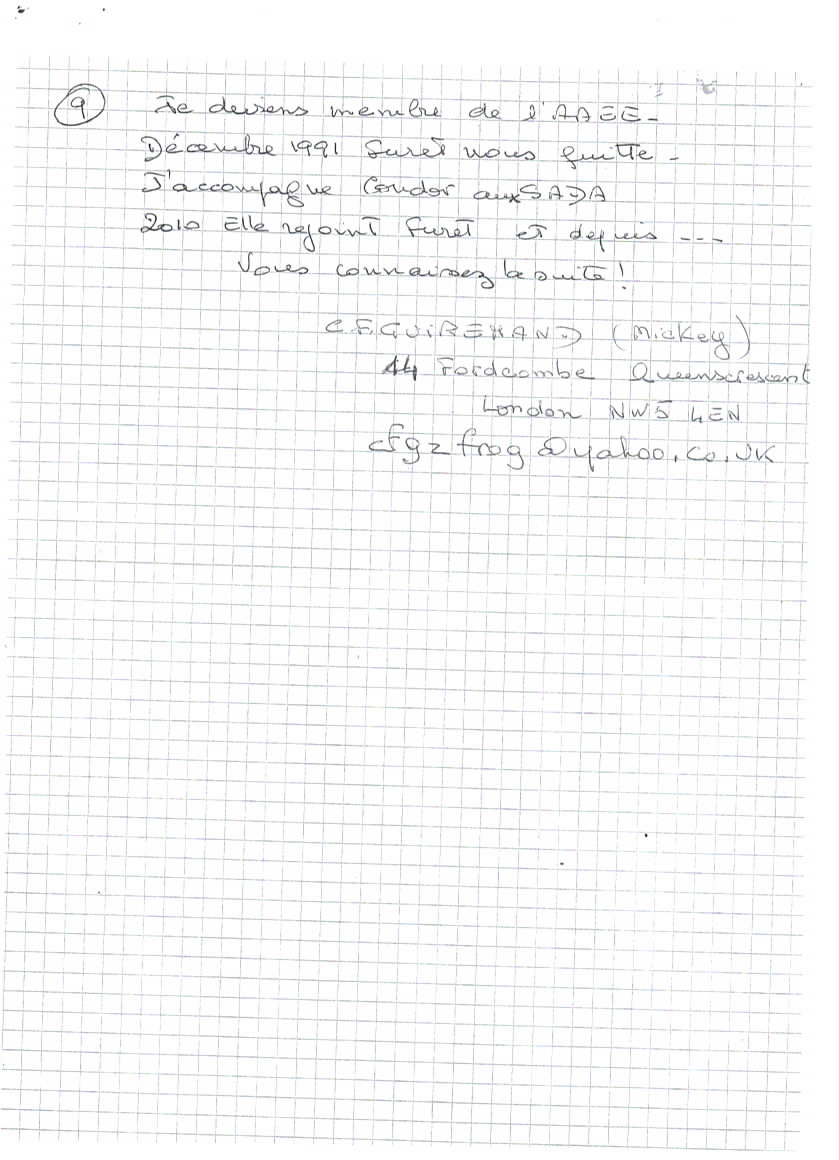 9 Je deviens membre de l'AAEE-
Décembre 1991 Furet nous quitte -
J'accompagne Condor aux SADA
2010 Elle rejoint Furet et depuis ---
Vous connaissez la suite !
C.F. GUIREMAND (Mickey)
14 Fordcombe Queenscrescent
London NW5 4EN
cfgzfrog@yahoo.co.uk